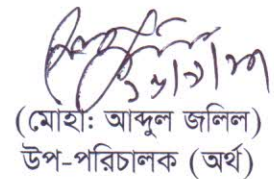 (মোহাঃ আব্দুল জলিল)
উপ-পরিচালক (অর্থ)